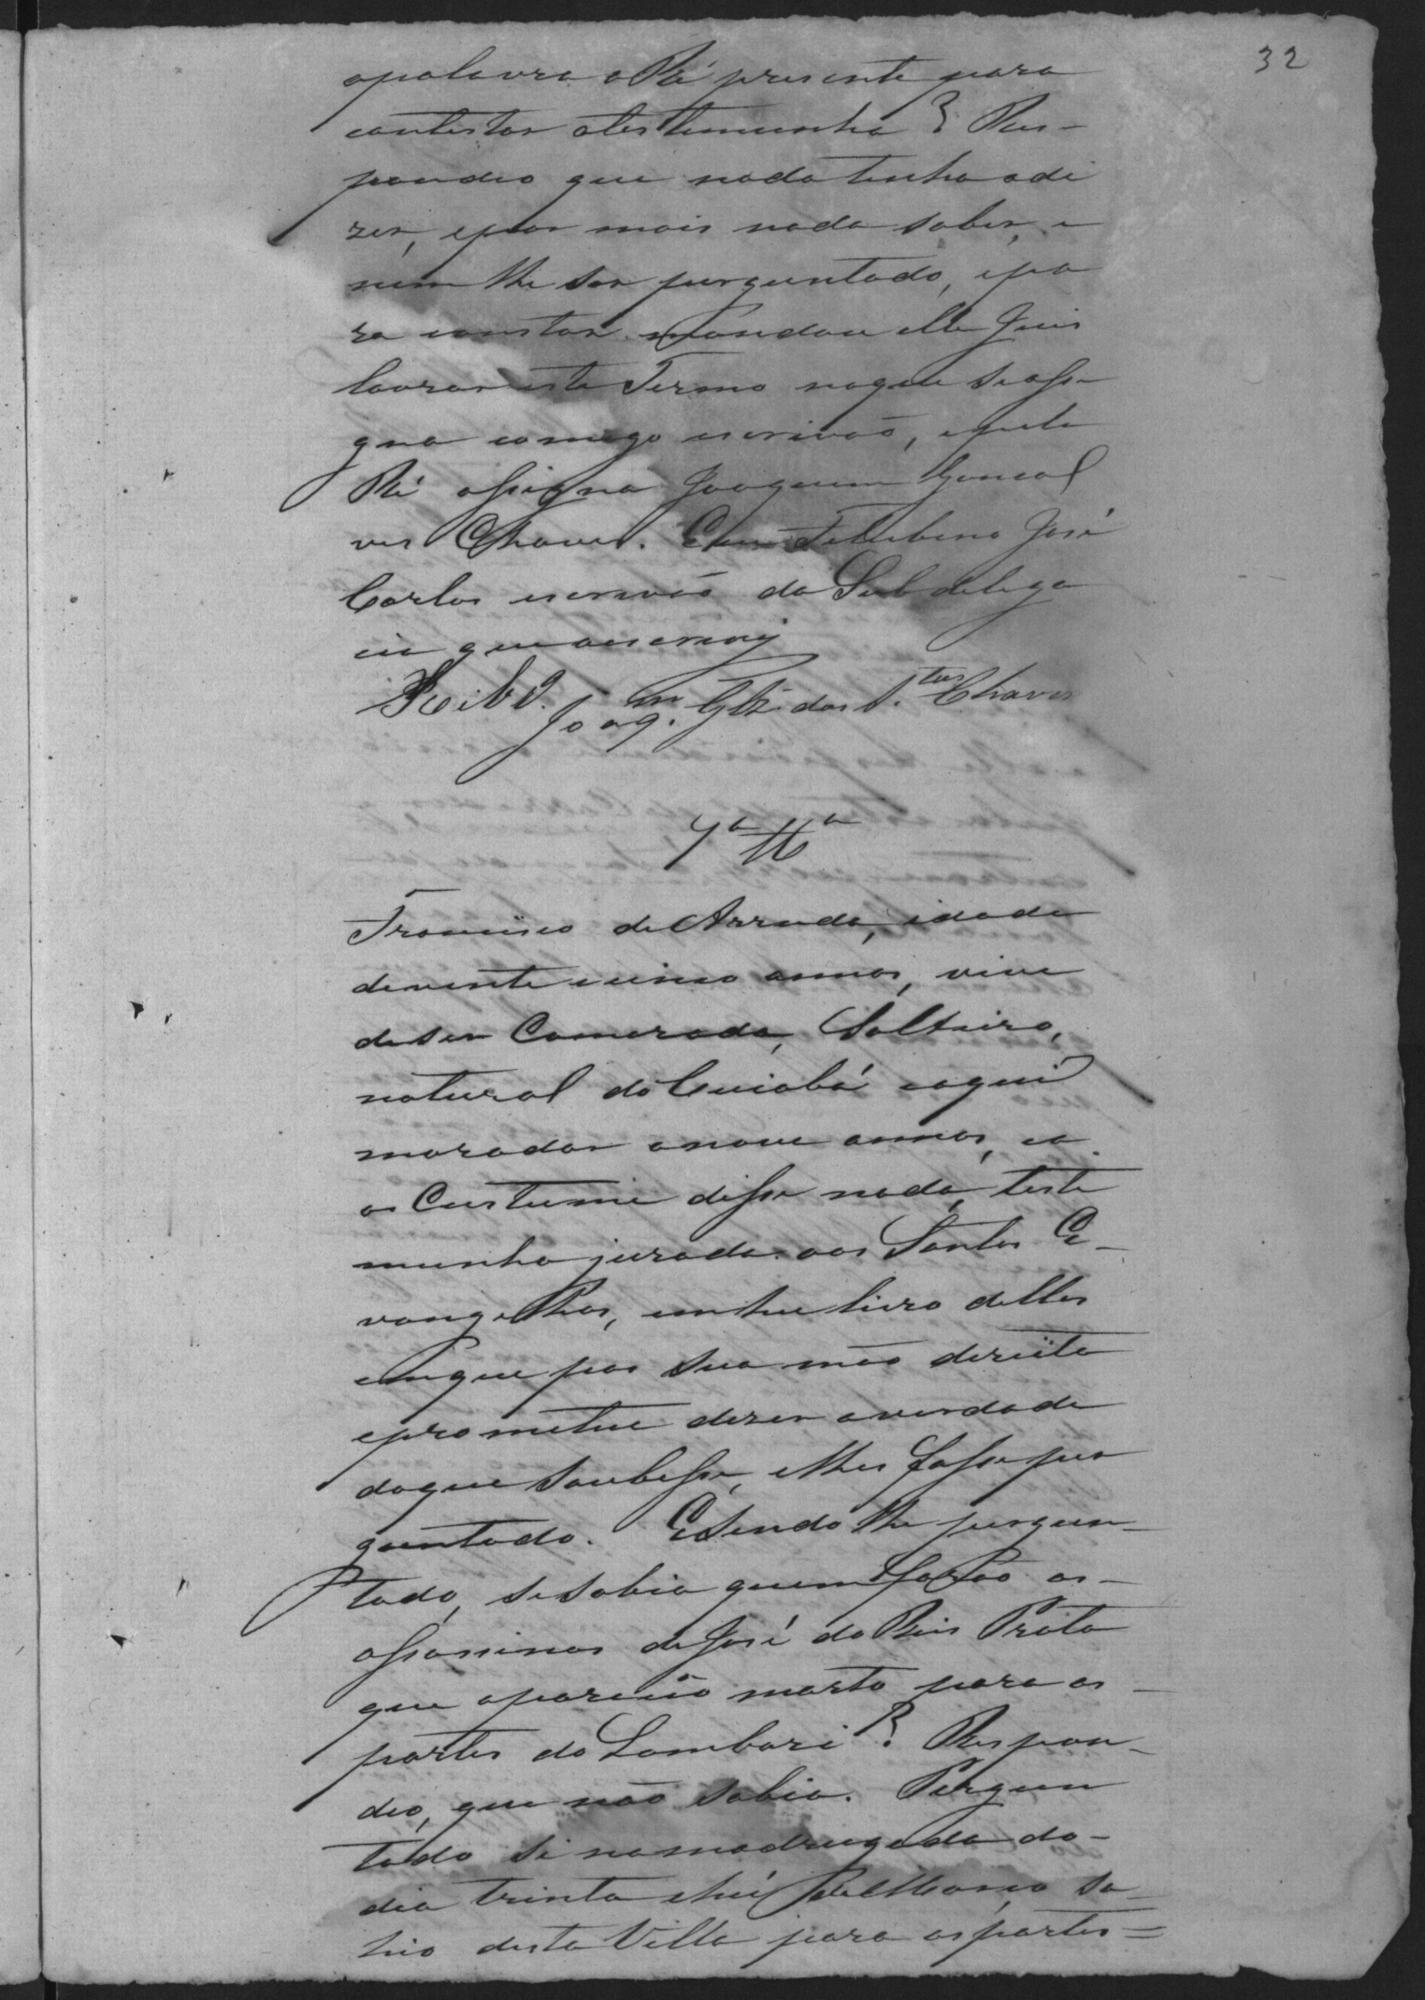 32
apalavra o Ré presente para
contestar atestemunha? Res-
pondeo que nada tinha adi
zer, epor mais nada saber, e
nem lhe ser perguntado, epa
ra constar mandou elle Juis
lavrar este Termo noque se assi
gna comigo escrivaõ, epelo
Ré assigna Joaquim Goncal
ves Chaves. Eu José
Carlos escrivaõ da Subdelega
cia que oescrevy
Joaq.m Glz dos S.tos Chaves
7ª Ttª
Francisco de Arruda, idade
devinte cinco annos, vive
deser Camarada, Solteiro,
natural do Cuiabá eaqui
morador anove annos, ea
os Custume disse nada, teste
munha jurada aos Santos E-
vangelhos, emhu livro delles
emque pos sua mão direita
eprometeu dizer averdade
doque soubesse, elhes fosse per
guntado. Esendo lhe pergun-
tado, sesabia quem foraõ os-
assassinos de José do Reis Prata
que apareceo morto para as-
partes do Lambari? Respon-
deo, que não sabia. Pergun
tado si namadrugada do-
dia trinta ehú de Março sa-
hio desta Villa para aspartes=